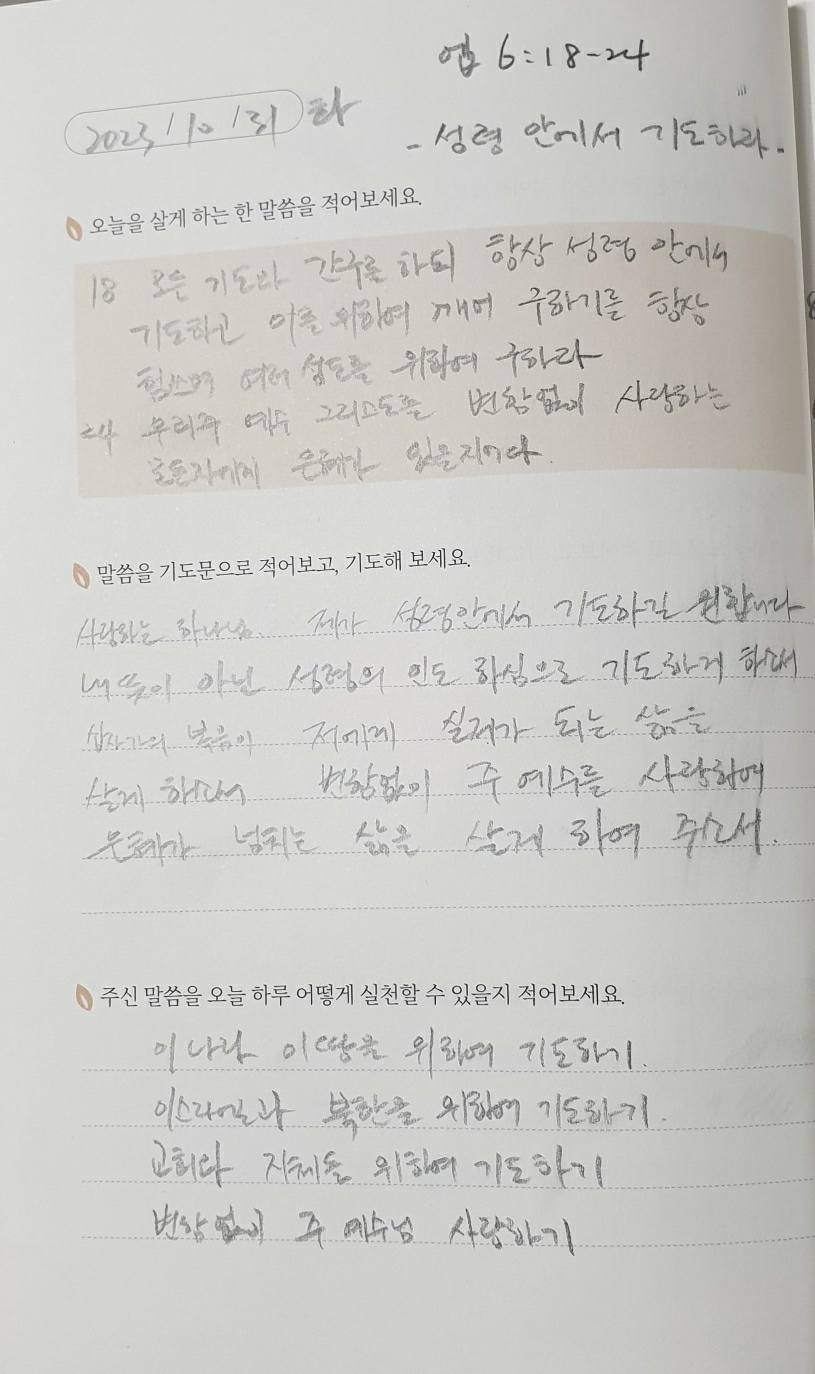 엡 6:18-24
2023/10/31 화
- 성령 안에서 기도하라.
오늘을 살게 하는 한 말씀을 적어보세요.
18 모든 기도와 간구를 하되 항상 성령 안에서
기도하고 이를 위하여 깨어 구하기를 항상
힘쓰며 여러 성도를 위하여 구하라
24 우리 주 예수 그리스도를 변함없이 사랑하는
모든자에게 은혜가 있을지어다.
말씀을 기도문으로 적어보고, 기도해 보세요.
사랑하는 하나님. 제가 성령안에서 기도하길 원합니다
내 뜻이 아닌 성령의 인도 하심으로 기도하게 하소서
십자가의 복음이 저에게 실제가 되는 삶을
살게 하소서 변함없이 주 예수를 사랑하여
은혜가 넘치는 삶을 살게 하여 주소서.
주신 말씀을 오늘 하루 어떻게 실천할 수 있을지 적어보세요.
이 나라 이 땅을 위하여 기도하기.
이스라엘과 북한을 위하여 기도하기.
교회와 지체를 위하여 기도하기
변함없이 주 예수님 사랑하기